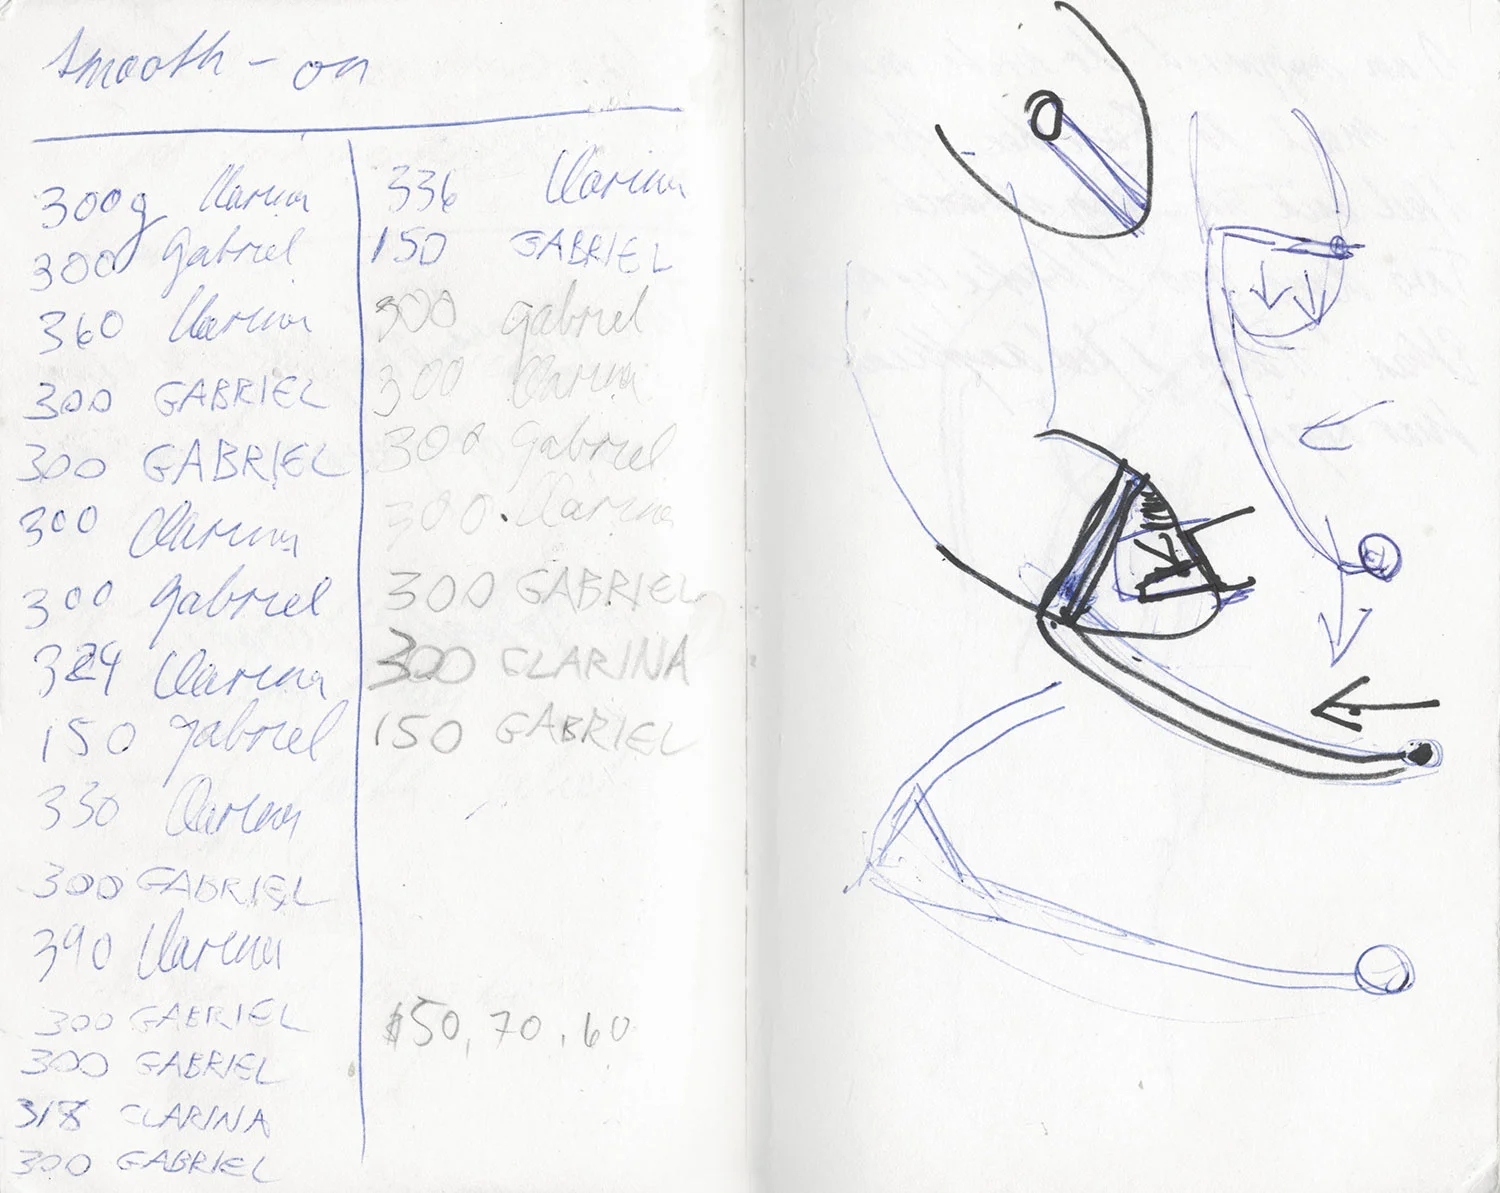 Smooth-on
300g Clarina
300 gabriel
360 Clarina
300 GABRIEL
300 GABRIEL
300 Clarina
300 gabriel
324 Clarina
150 gabriel
330 Clarina
300 GABRIEL
390 Clarina
300 GABRIEL
300 GABRIEL
318 CLARINA
300 GABRIEL
336 Clarina
150 GABRIEL
300 gabriel
300 Clarina
300 gabriel
300 Clarina
300 GABRIEL
300 CLARINA
150 GABRIEL
$50, 70, 60